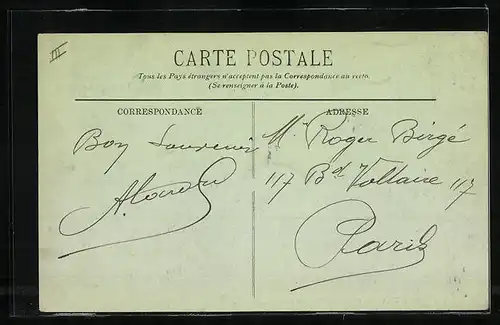 III
CARTE POSTALE
Tous les Pays étrangers n'acceptent pas la Correspondance au recto.
(Se renseigner à la Poste).
CORRESPONDANCE
Bon Souvenir
ADRESSE
Mr Roger Birgé
117 Bd Voltaire 117
Paris